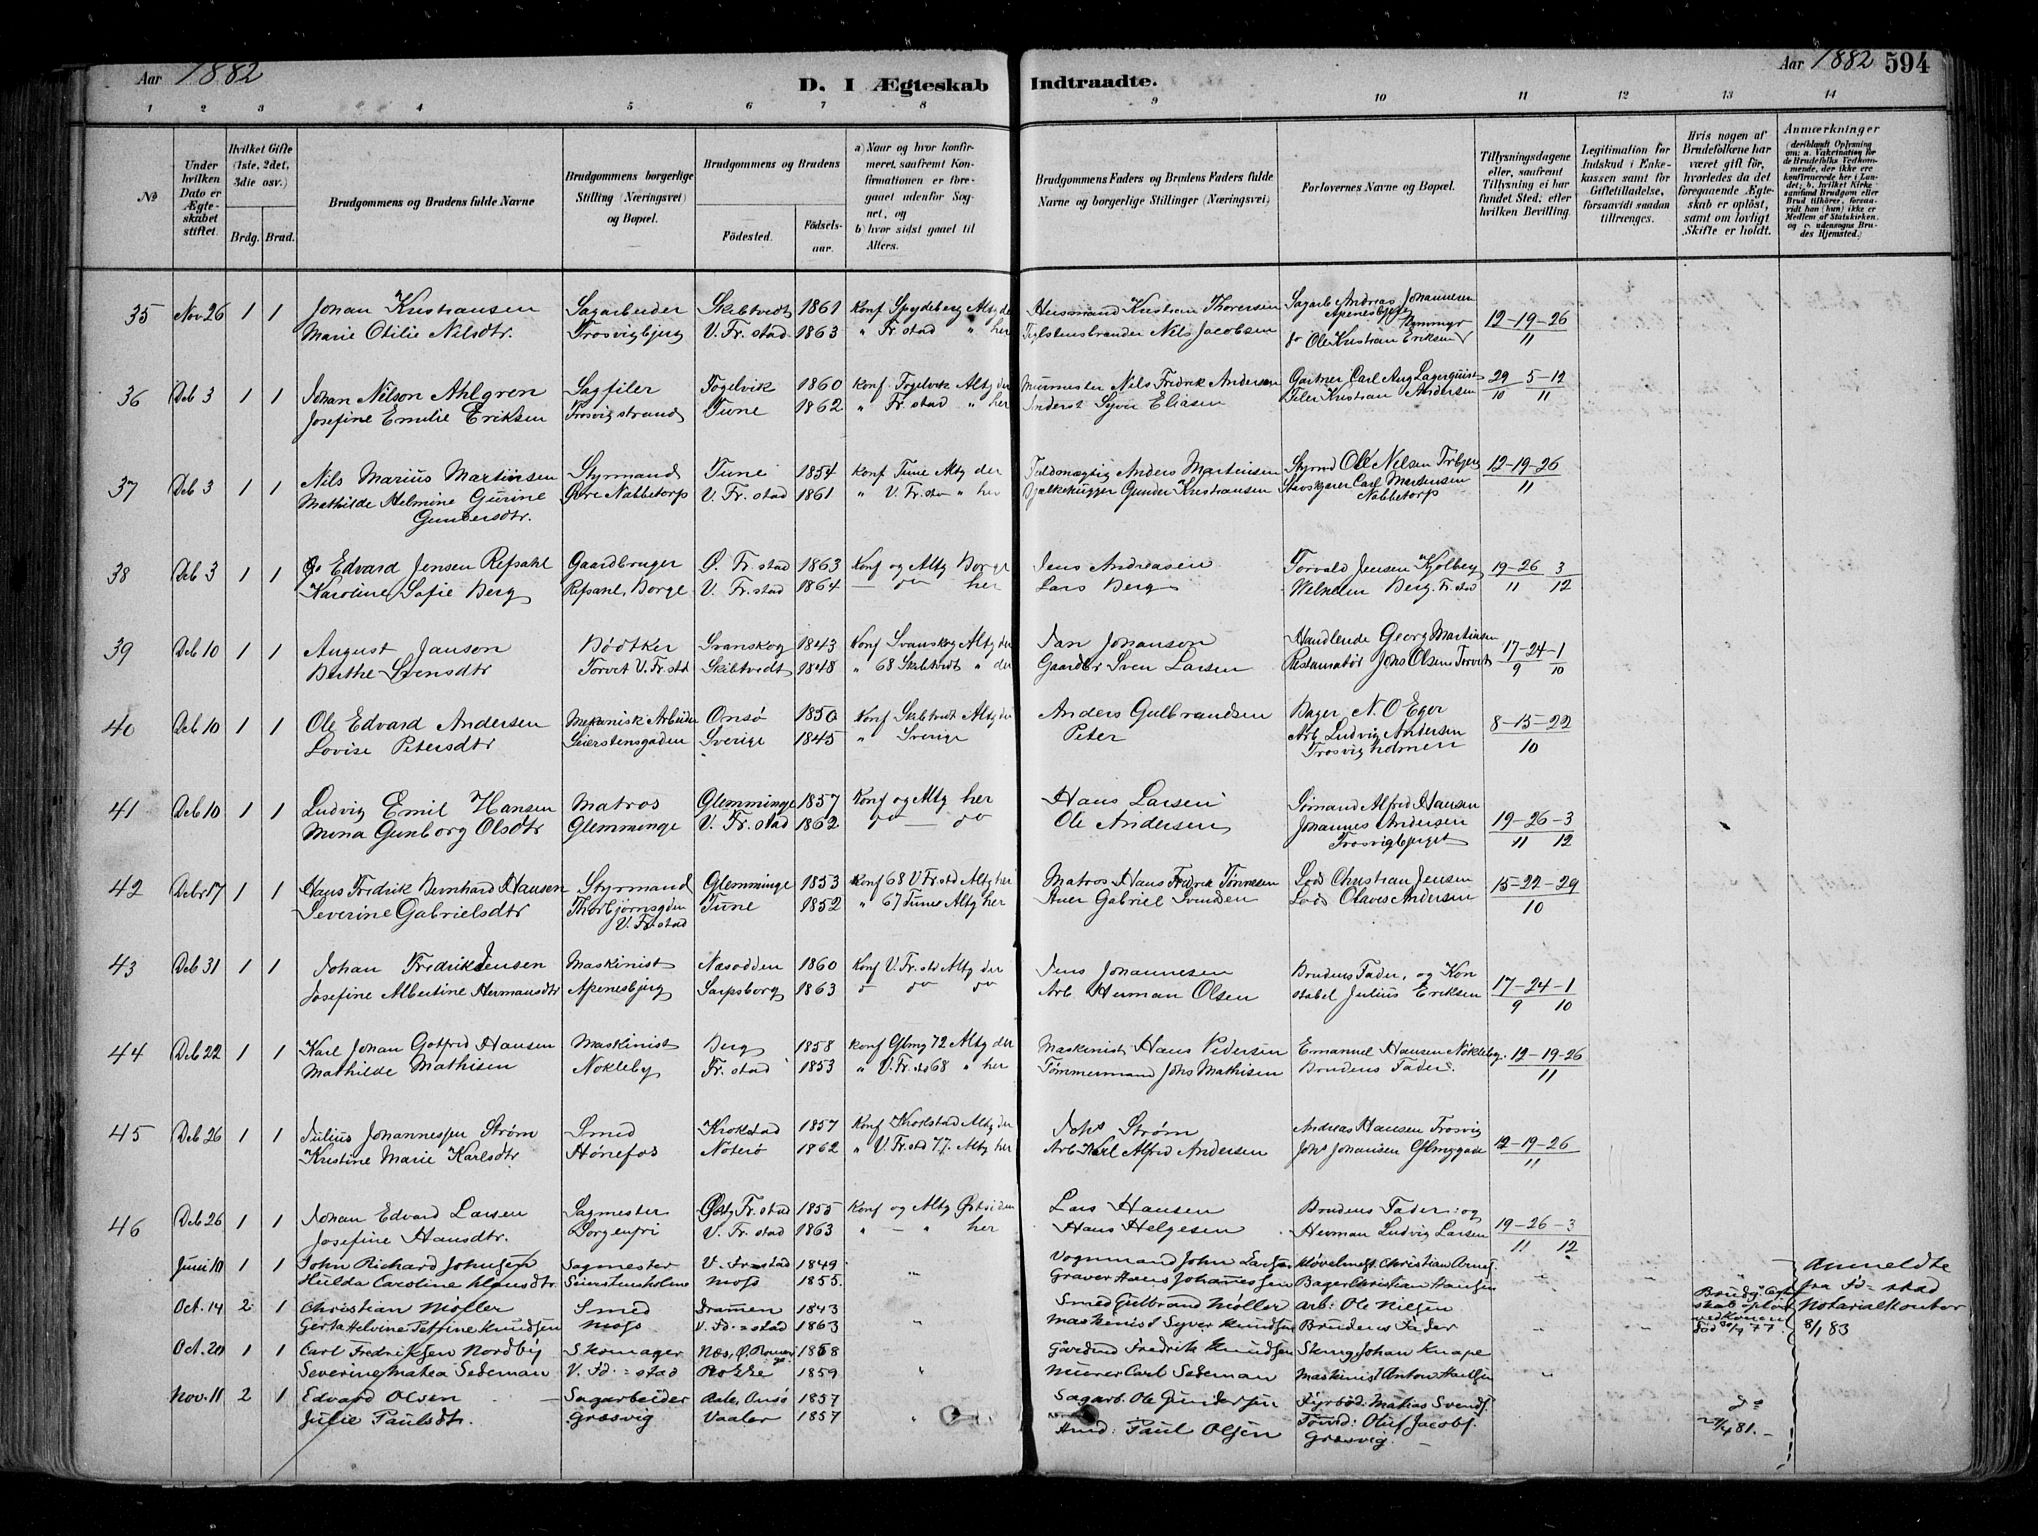 Aar 1882
D. I Ægteskab Indtraadte.
Aar 1882 594
1 2 3 4 5 6 7 8 9 10 11 12 13 14
№
Under hvilken Dato er Ægteskabet stiftet.
Hvilket Gifte (1ste, 2det, 3die osv.)
Brdg. Brud.
Brudgommens og Brudens fulde Navne
Brudgommens borgerlige Stilling (Næringsvei) og Bopæl.
Brudgommens og Brudens
Fødested. Fødselsaar.
a) Naar og hvor konfirmeret, saafremt Konfirmationen er foregaaet udenfor Sognet, og b) hvor sidst gaaet til Alters.
Brudgommens Faders og Brudens Faders fulde Navne og borgerlige Stillinger (Næringsvei)
Forlovernes Navne og Bopæl.
Tillysningsdagene eller, saafremt Tillysning ei har fundet Sted; efter hvilken Bevilling.
Legitimation for Indskud i Enkekassen samt for Giftetilladelse, forsaavidt saadan tiltrænges.
Hvis nogen af Brudefolkene har været gift før, hvorledes da det foregaaende Ægteskab er opløst, samt om lovligt Skifte er holdt.
Anmærkninger
35 Nov 26 1 1 Johan Kristiansen Sagarbeider Skibtvedt 1861 Konf Spydeberg Altg der Kristian Thoresen Sagarb Andreas Johannesen Apenesbjerg 12-19-26
Marie Otilie Nilsdtr. Trosvigbjerg V. Fr. stad 1863 " Fr stad " her Teglstensbrænder Nils Jacobsen do Ole Kristian Eriksen 11
36 Deb 3 1 1 Johan Nilson Ahlgren Sagfiler Fogelvik 1860 Konf Fogelvik Altg der Murmester Nils Fredrik Andersen Gartner Carl Aug Lagerquist 29 5-12
Josefine Emilie Eriksen Trosvigstrand Tune 1862 " Fr. stad " her Syver Eliasen Filer Kristian Andersen 10 11
37 Deb 3 1 1 Nils Marius Martinsen Styrmand Tune 1854 Konf Tune Altg der Fuldmægtig Anders Martinsen Styrmd Ole Nilsen 12-19-26
Mathilde Helmine Gurine Øvre Nabbetorp V. Fr. stad 1861 " V. Fr. sta " her Bjelkehugger Gunder Kristiansen Carl Martensen 11
Gundersdtr. Nabbetorp
38 Deb 3 1 1 Edvard Jensen Refsahl Gaardbruger Ø. Fr. stad 1863 Konf og Altg Borge Jens Andreasen Torvald Jensen Kjølberg 19-26 3
Karoline Sofie Berg Refsahl, Borge V. Fr. stad 1864 — do her Lars Berg Wilhelm Berg. Fr. stad 11 12
39 Deb 10 1 1 August Janson Bødtker Svanskog 1843 Konf Svanskog Altg der Jan Johanson Handlende Georg Martinsen 17-24-1
Berthe Svensdtr Torvet V. Fr. std Skibtvedt 1848 " 68 Skibtvedt " der Gaardbr Sven Larsen Johs Olsen Torvet 9 10
40 Deb 10 1 1 Ole Edvard Andersen Mekanisk Arbeider Onsø 1850 Konf Skibtvedt Altg der Anders Gulbrandsen Bager N. O Eger 8-15-22
Lovise Petersdtr Seierstensgaden Sverige 1845 " Sverige Peter Arb Ludvig Andersen 10
Trosvigholmen
41 Deb 10 1 1 Ludvig Emil Hansen Matros Glemminge 1857 Konf og Altg her Hans Larsen Sømand Alfred Hansen 19-26-3
Mina Gunborg Olsdtr Glemminge V. Fr. stad 1862 do — do Ole Andersen Johannes Andersen 11 12
Trosvigbjerget
42 Debr 17 1 1 Hans Fredrik Bernhard Hansen Styrmand Glemminge 1853 Konf 68 V Fr. std Altg her Matros Hans Fredrik Tønnesen Lods Christian Jensen 15-22-29
Severine Gabrielsdtr Thorbjørnsgden Tune 1852 " 67 Tunes Altg her Gabriel Svendsen Lods Olaves Andersen 10
V. Fr. stad
43 Deb 31 1 1 Johan Fredrik Jensen Maskinist Næsodden 1860 Konf V. Fr. std Altg der Jens Johannesen Brudens Fader, og Kon 17-24-1
Josefine Albertine Hermansdtr Apenesbjerg Sarpsborg 1863 do do do Arb. Herman Olsen stabel Julius Eriksen 9 10
44 Deb 22 1 1 Karl Johan Gotfred Hansen Maskinist Berg 1858 Konf Glmg 72 Altg der Maskinist Hans Pedersen Emanuel Hansen Nøkleby. 12-19-26
Mathilde Mathisen Nøkleby Fr. stad 1853 " V. Fr. std 68 " her Tømmermand Johs Mathisen Brudens Fader. 11
45 Deb 26 1 1 Julius Johannesen Strøm Smed Krokstad 1857 Konf Krokstad Altg der Johs Strøm Andreas Hansen Trosvig 12-19-26
Kristine Marie Karlsdtr Hønefos Nøterø 1862 " V. Fr. std 77. Altg her Arb. Karl Alfred Andersen Johs Johansen Glmggade 11
46 Deb 26 1 1 Johan Edvard Larsen Sagmester Østg Fr. stad 1855 Konf og Altg Østsiden Lars Hansen Brudens Fader: og 19-26-3
Josefine Hansdtr. Sorgenfri V. Fr. stad 1863 " — " her Hans Helgesen Herman Ludvig Larsen 11 12
Juni 10 1 1 John Richard Johnsen Sagmester V. Fr=stad 1849 " Vognmand John Larsen Høvelmstr. Christian Arnes.
Hulda Caroline Hansdtr. Seierstensholme Moss 1855 Graver Hans Johannessen Bager Christian Hansen
Oct. 14 2 1 Christian Møller Smed Dramen 1843 " Smed Gulbrand Møller Arb: Ole Nilsen
Gerta Helvine Petrine Knudsen Moss V. Fd=stad 1863 Maskinist Syver Knudsen Brudens Fader
Oct. 20 1 1 Carl Fredriksen Nordby Skomager Næs, Ø. Romerge 1858 " Fredrik Knudsen Skmg Johan Knape
Severine Mathea Sedeman V. Fd=stad Rokke 1859 Murer Carl Sedeman Maskinist Anton Hansen
Nov. 11 2 1 Edvard Olsen Sagarbeider Aale, Onsø 1857 " Sagarb. Ole Gundersen Fyrbød: Matias Svends.
Julie Paulsdtr. Græsvig Vaaler 1857 Paul Olsen Oluf Jacobs. Græsvig.
Anmeldte fra Fd=stad Notarialkontor 8/1 83
do 27/4 81.